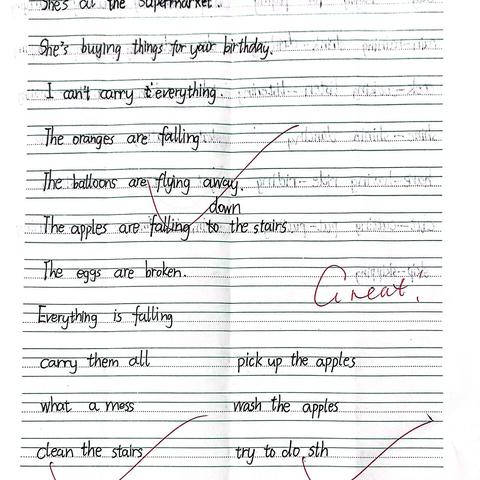 She's at the supermarket.
She's buying things for your birthday.
I can't carry everything.
The oranges are falling
The balloons are flying away.
down
The apples are falling to the stairs.
The eggs are broken.
Great!
Everything is falling
carry them all pick up the apples
what a mess wash the apples
clean the stairs try to do sth